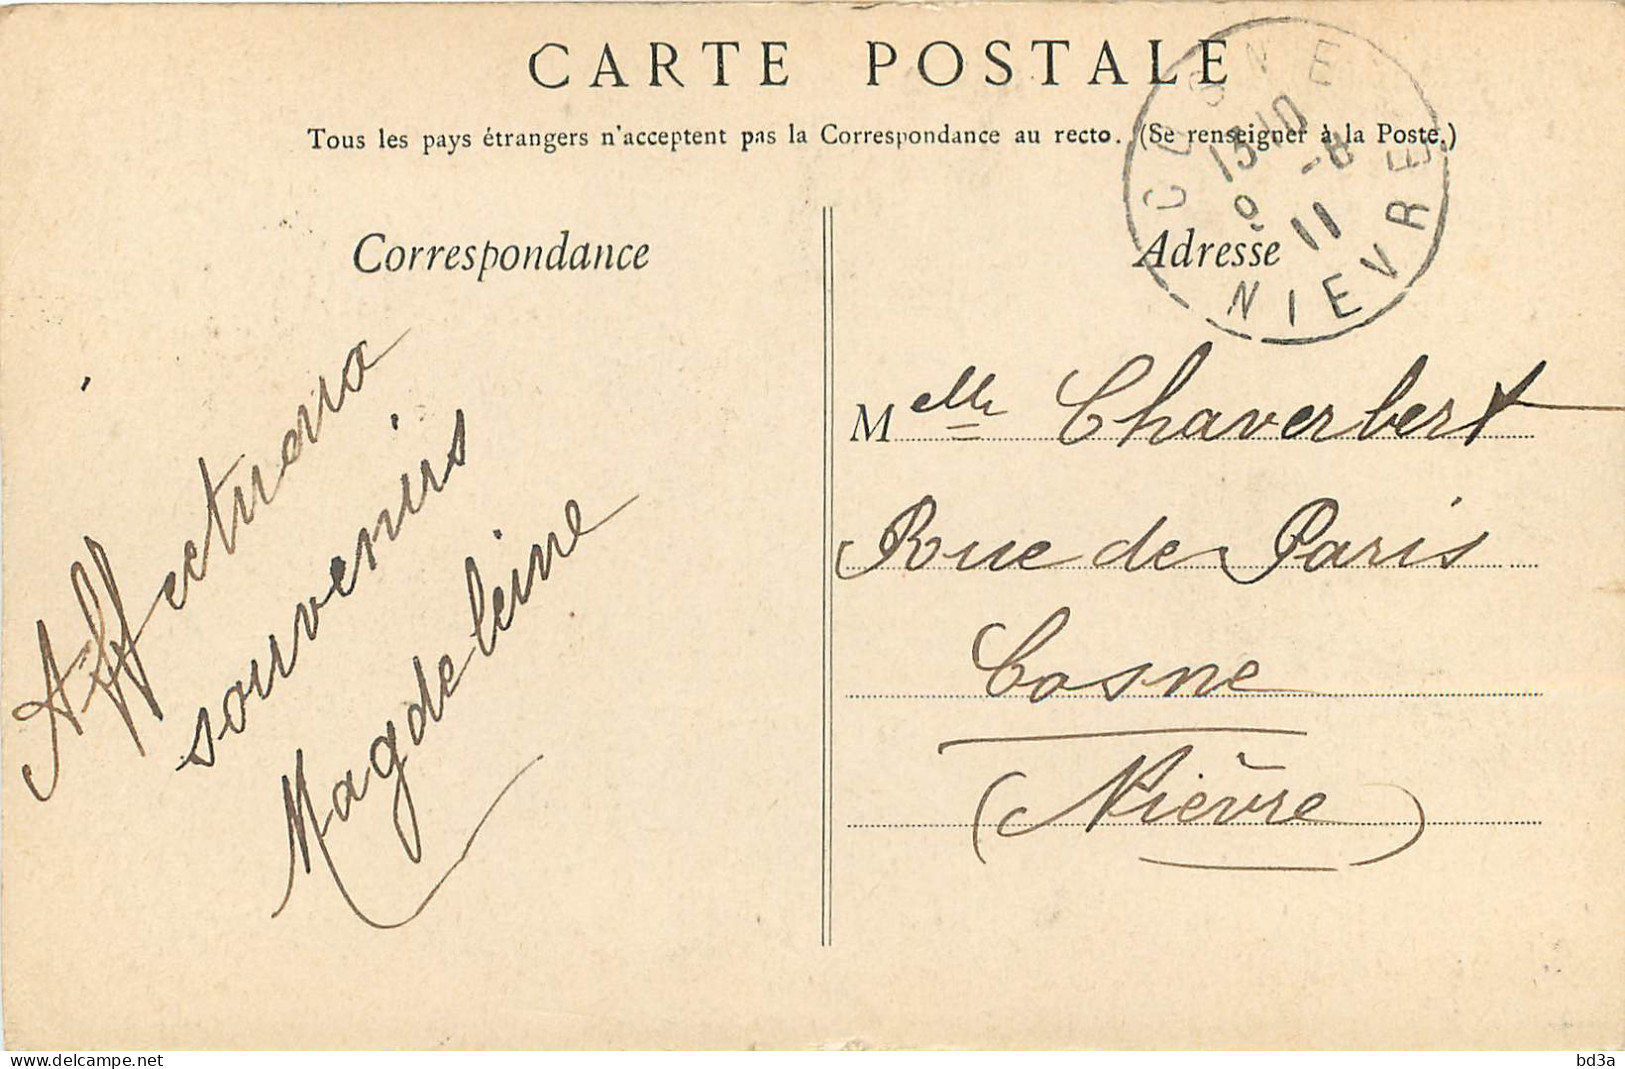 CARTE POSTALE
Tous les pays étrangers n'acceptent pas la Correspondance au recto. (Se renseigner à la Poste.)
COSNE
13*10
9 -8
11
NIEVRE
Correspondance
Affectueux
souvenirs
Magdeleine
Adresse
Melle Chaverbert
Rue de Paris
Cosne
(Nièvre)
www.delcampe.net
bd3a